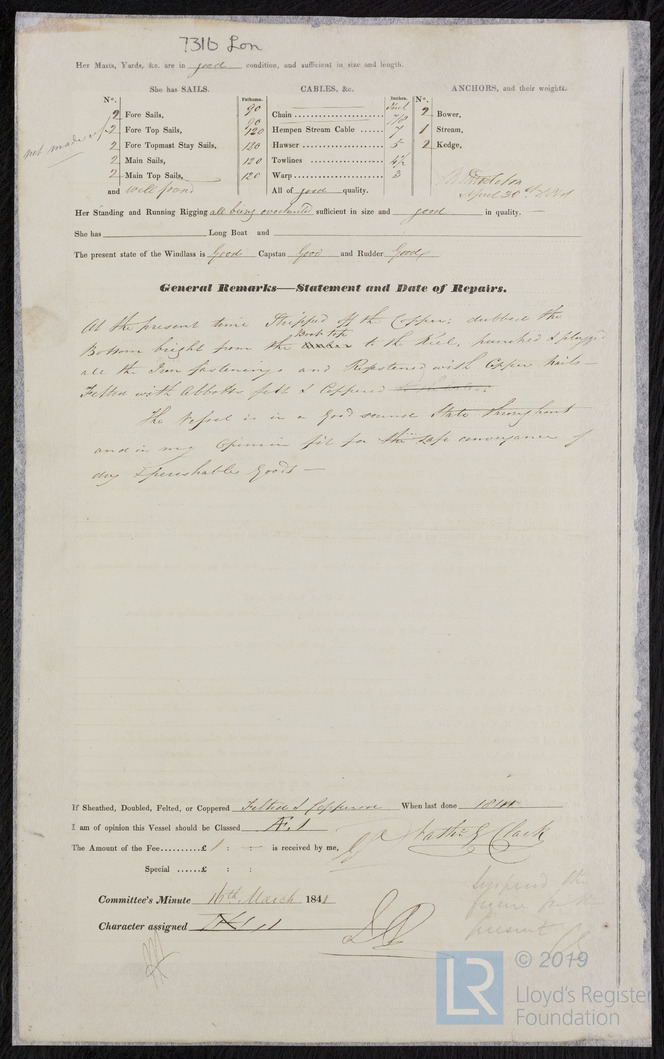 7316 Lon
Her Masts, Yards, &c. are in good condition, and sufficient in size and length.
She has SAILS. CABLES, &c. ANCHORS, and their weights.
N°. Fathoms. Inches. N°.
2 Fore Sails, 90 Chain 7/8 2 Bower,
2 Fore Top Sails, 90 120 Hempen Stream Cable 7 1 Stream,
2 Fore Topmast Stay Sails, 120 Hawser 5 2 Kedge,
2 Main Sails, 120 Towlines 4½
2 Main Top Sails, 120 Warp 3
not made
and well found All of good quality.
April 30
Her Standing and Running Rigging all being overhauled sufficient in size and good in quality.
She has Long Boat and
The present state of the Windlass is Good Capstan Good and Rudder Good
General Remarks—Statement and Date of Repairs.
At the present time Stripped off the Copper; dubbed the
Bottom bright from the Bends to the Keel, punched & plugg'd
all the Iron fastenings and Refastened with Copper nails—
Felted with Abbotts felt & Coppered
The Vessel is in a Good sound State throughout
and in my Opinion fit for the safe conveyance of
dry & perishable Goods—
If Sheathed, Doubled, Felted, or Coppered Felted & Coppered When last done 1841
I am of opinion this Vessel should be Classed Æ 1
The Amount of the Fee £ 1 : - : is received by me, Nath: G Clark
Special £ : :
Committee's Minute 16th March 1841
Character assigned Æ 1
Suspend the
for the
present
LR
© 2019
Lloyd's Register
Foundation